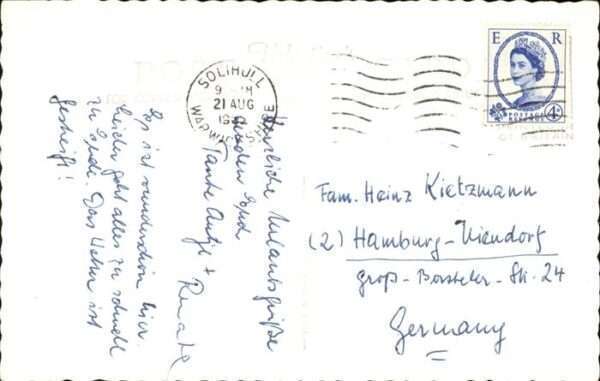 SOLIHULL
21 AUG
E R
4D
POSTAGE REVENUE
Herzliche Urlaubsgrüße
senden Euch
Tante Antje +
Renate
Es ist wunderschön hier.
Leider geht alles zu schnell
zu Ende. Das Wetter ist
gescheit!
Fam. Heinz Kietzmann
(2) Hamburg-Niendorf
Groß-Borsteler-Str. 24
Germany